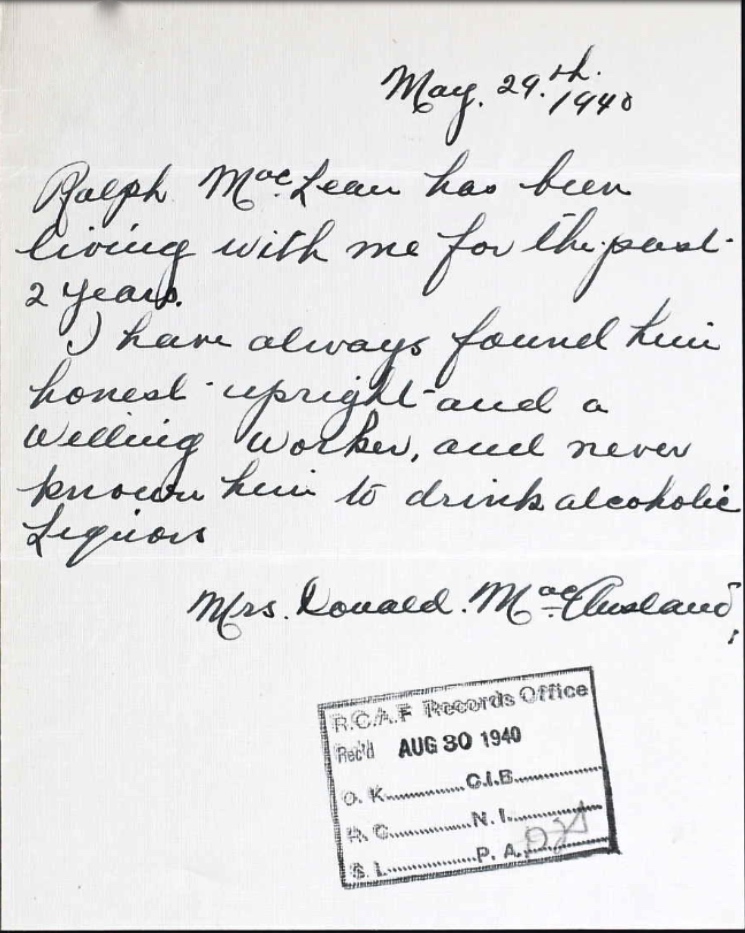 May. 29.th. 1940
Ralph MacLean has been
living with me for the past
2 years.
I have always found him
honest upright and a
willing worker, and never
known him to drink alcoholic
Liquors
Mrs. Donald. MacAusland,
R.C.A.F Records Office
Rec'd AUG 30 1940
O. K. C.I.B.
R. C. N. I.
S. L. P. A.